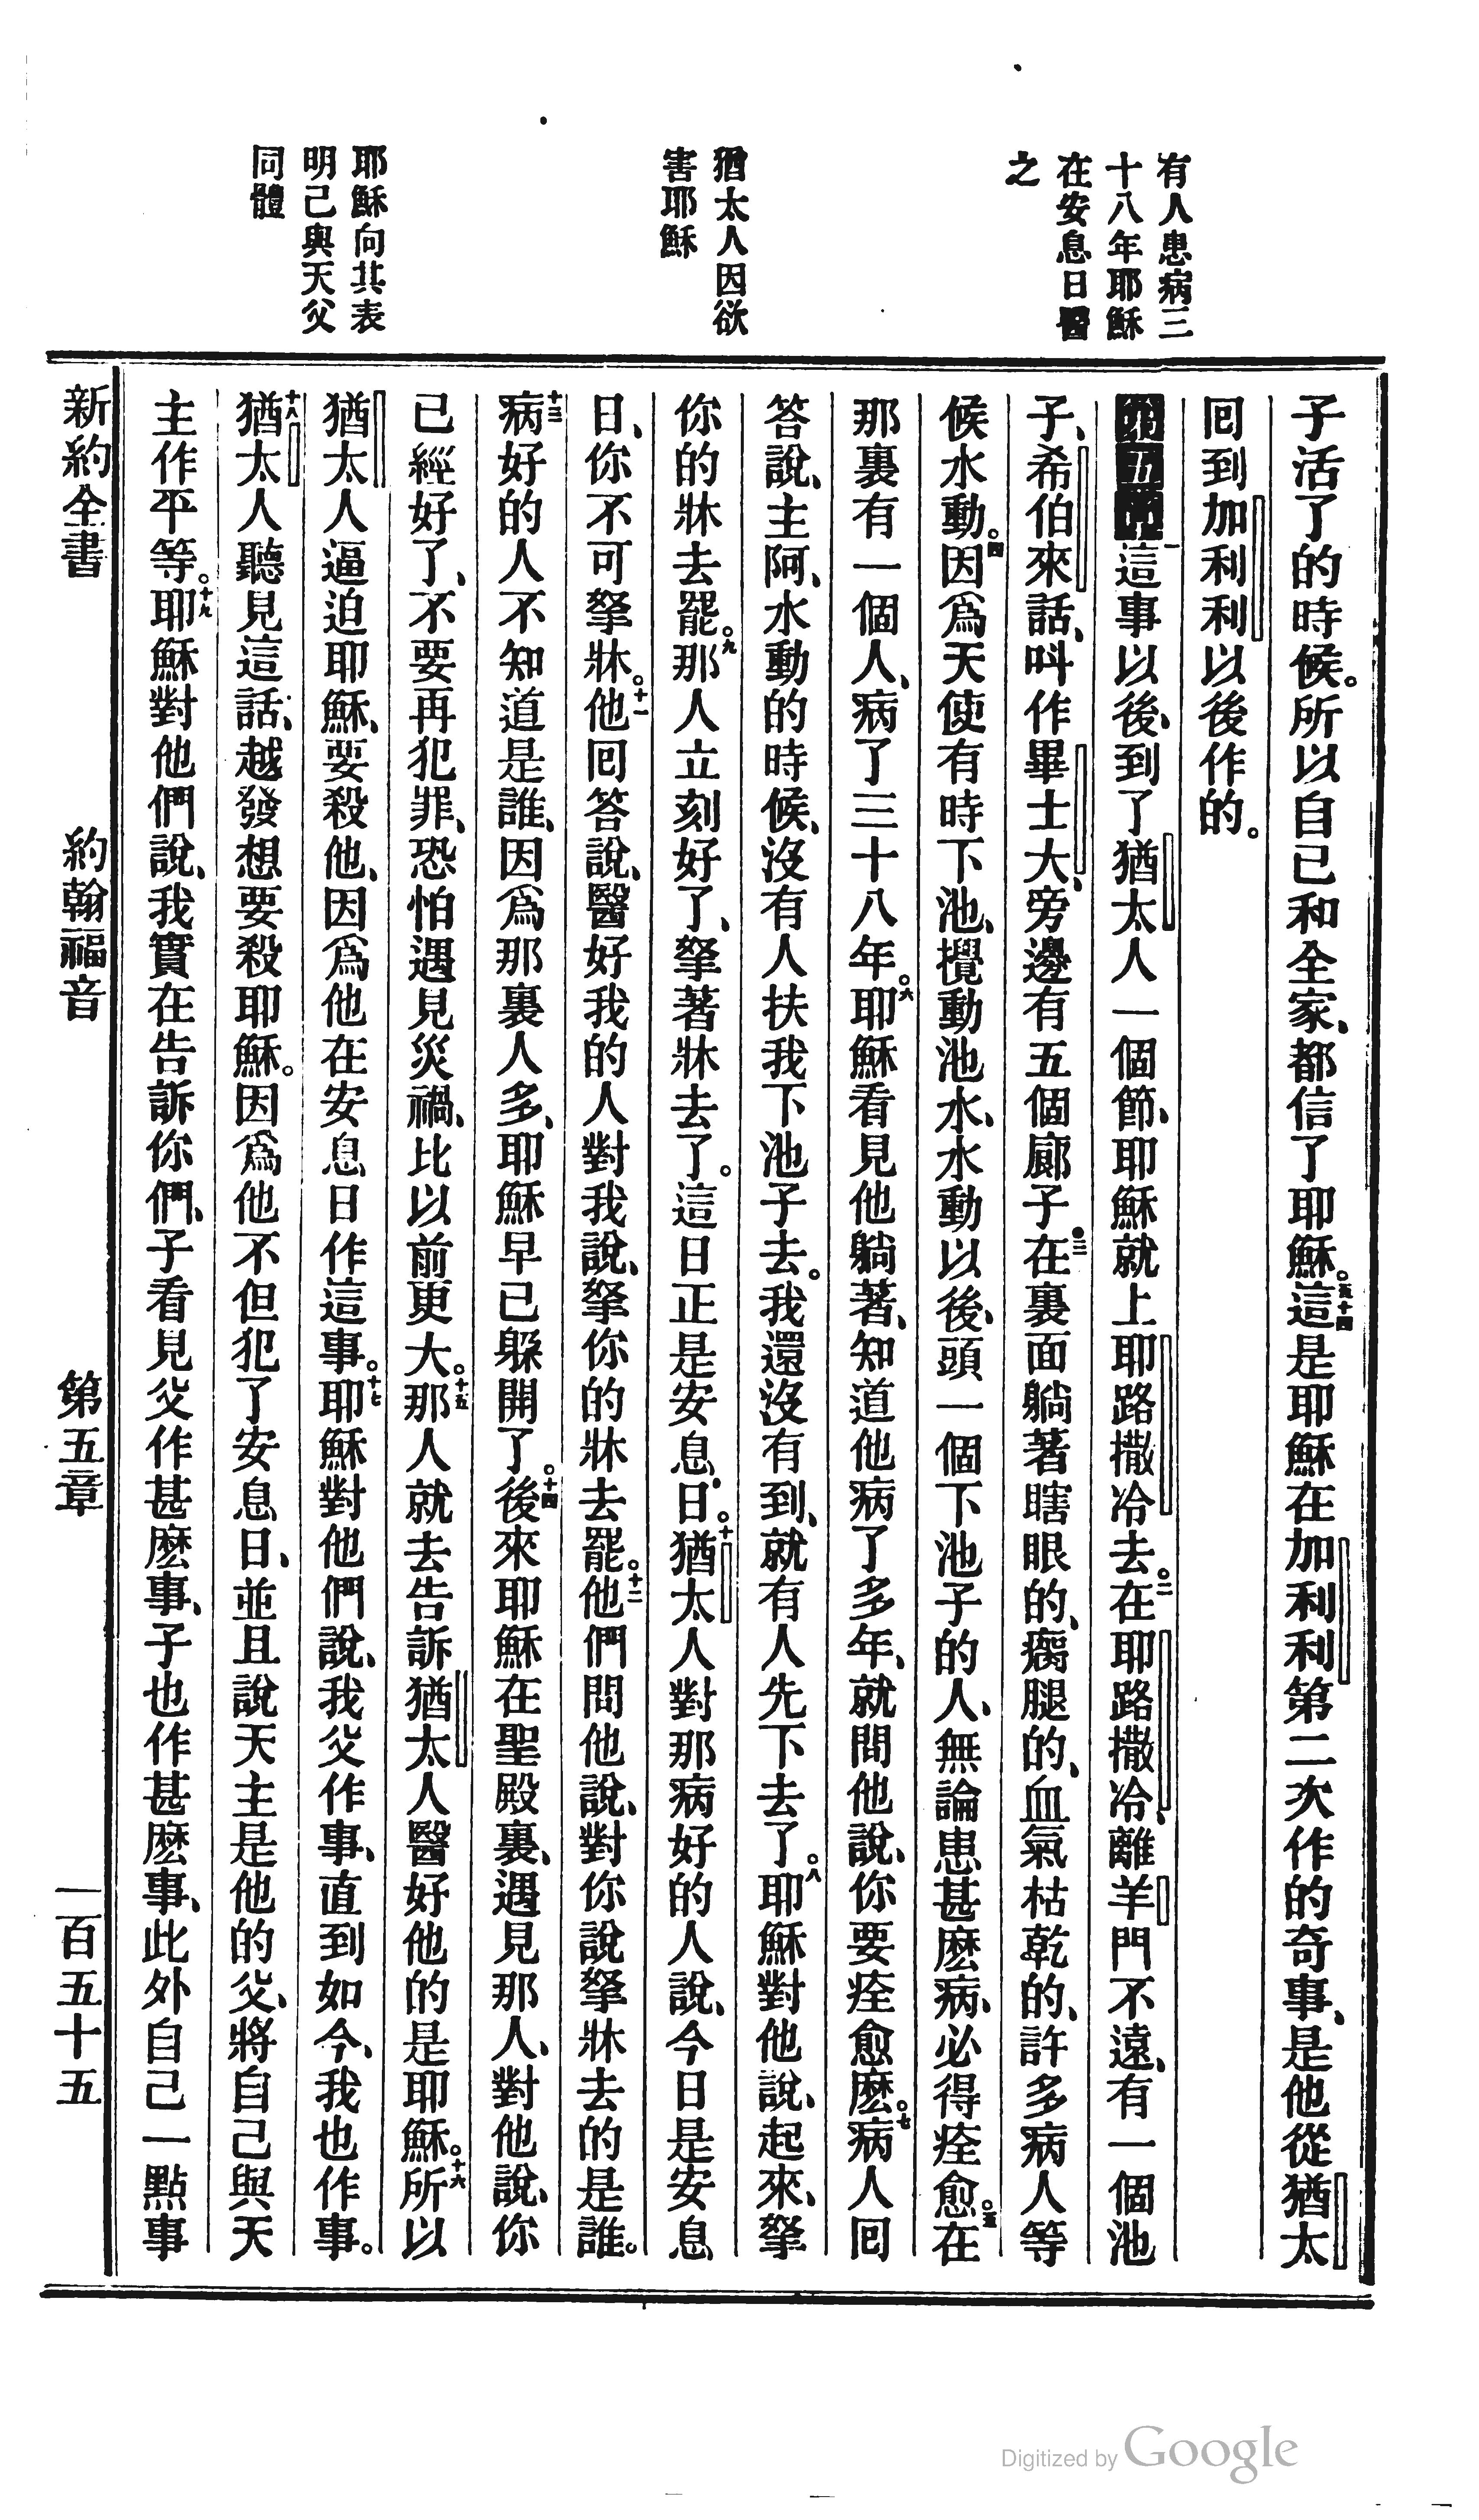 有人患病三
十八年耶穌
在安息日醫
之
猶太人因欲
害耶穌
耶穌向其表
明己與天父
同體
子活了的時候。所以自已和全家、都信了耶穌。五十四這是耶穌在加利利第二次作的奇事、是他從猶太
回到加利利以後作的。
第五章一這事以後、到了猶太人一個節、耶穌就上耶路撒冷去。二在耶路撒冷、離羊門不遠、有一個池
子、希伯來話、呌作畢士大、旁邊有五個廊子。三在裏面躺著瞎眼的、瘸腿的、血氣枯乾的、許多病人等
候水動。四因爲天使有時下池、攪動池水、水動以後、頭一個下池子的人、無論患甚麽病、必得痊愈。五在
那裏有一個人、病了三十八年。六耶穌看見他躺著、知道他病了多年、就問他說、你要痊愈麽。七病人回
答說、主阿、水動的時候、沒有人扶我下池子去。我還沒有到、就有人先下去了。八耶穌對他說、起來、拏
你的牀去罷。九那人立刻好了、拏著牀去了。這日正是安息日。十猶太人對那病好的人說、今日是安息
日、你不可拏牀。十一他回答說、醫好我的人對我說、拏你的牀去罷。十二他們問他說、對你說拏牀去的是誰。
十三病好的人不知道是誰、因爲那裏人多、耶穌早已躱開了。十四後來耶穌在聖殿裏、遇見那人、對他說、你
已經好了、不要再犯罪、恐怕遇見災禍、比以前更大。十五那人就去告訴猶太人醫好他的是耶穌。十六所以
猶太人逼迫耶穌、要殺他、因爲他在安息日作這事。十七耶穌對他們說、我父作事、直到如今、我也作事。
十八猶太人聽見這話、越發想要殺耶穌。因爲他不但犯了安息日、並且說天主是他的父、將自己與天
主作平等。十九耶穌對他們說、我實在告訴你們、子看見父作甚麽事、子也作甚麽事、此外自己一點事
新約全書 約翰福音 第五章 一百五十五
Digitized by Google